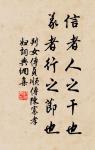 信者人之干也
義者行之節也
列女傳貞順傳陳寡孝
婦詞典網集